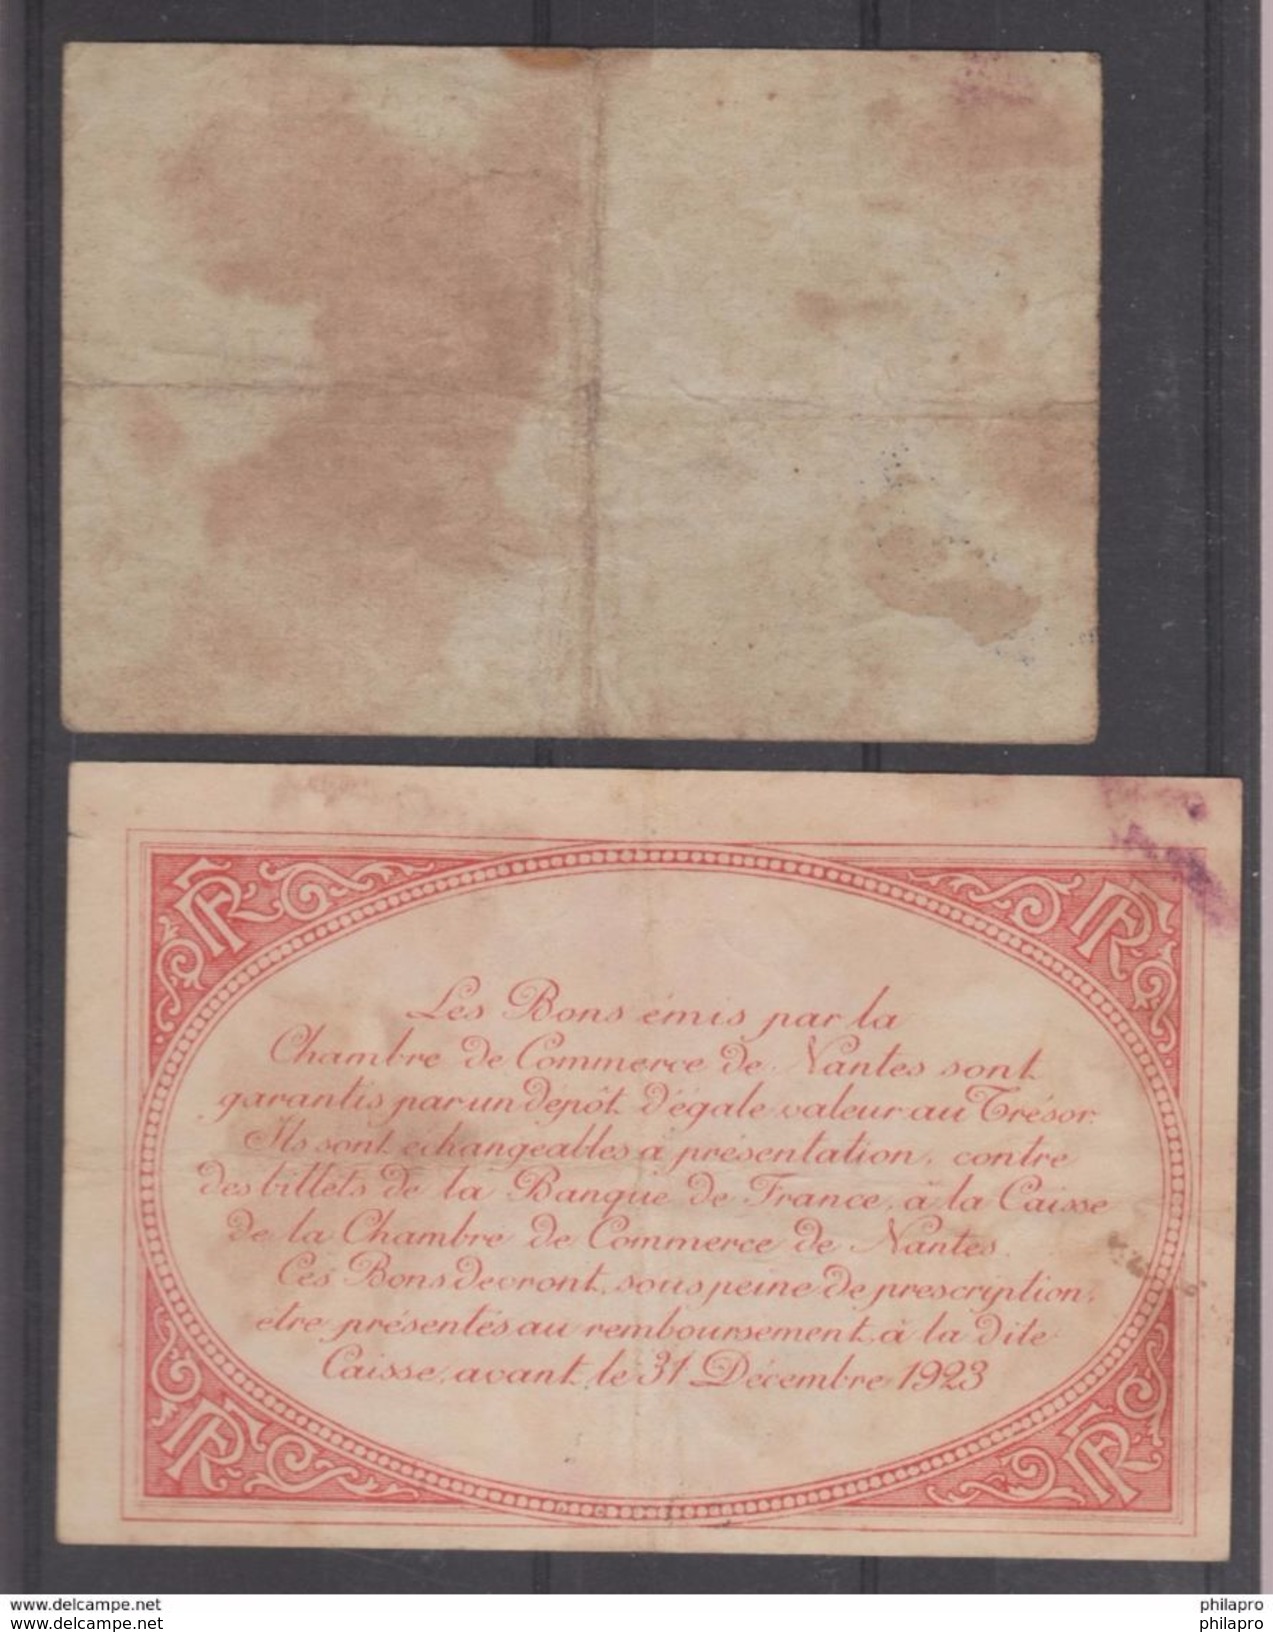 RF RF
Les Bons émis par la
Chambre de Commerce de Nantes sont
garantis par un dépôt d'égale valeur au Trésor.
Ils sont échangeables a présentation, contre
des billets de la Banque de France, à la Caisse
de la Chambre de Commerce de Nantes.
Ces Bons devront, sous peine de prescription,
etre présentés au remboursement, à la dite
Caisse, avant le 31 Décembre 1923
RF RF
www.delcampe.net philapro
www.delcampe.net philapro